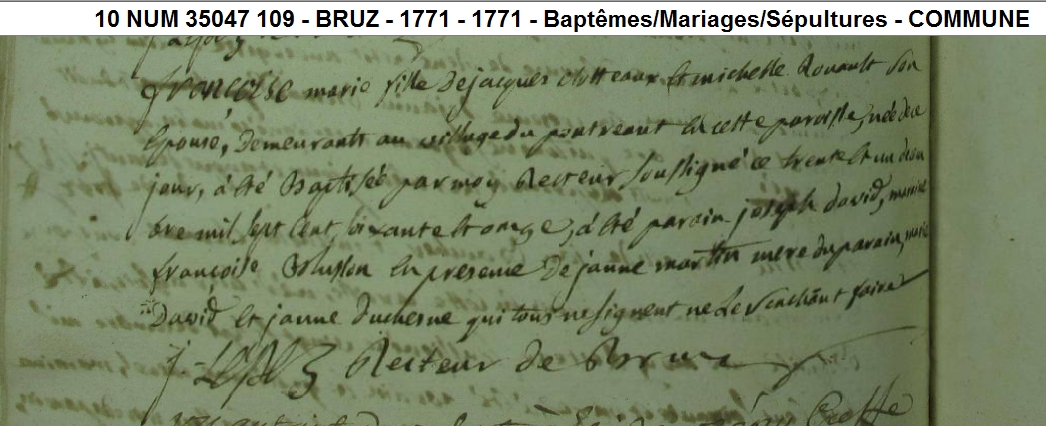 10 NUM 35047 109 - BRUZ - 1771 - 1771 - Baptêmes/Mariages/Sépultures - COMMUNE
francoise marie fille de jacques Clotteaux et michelle Rouault son
epouse, demeurants au village du pontreant en cette paroisse, née de ce
jour, a été Baptisée par moy Recteur soussigné ce trente et un
bre mil sept cent soixante et onze, a été parain joseph david,
françoise en presence de jeanne martin mere du parain, marie
David et jeanne duchesne qui tous ne signent ne le scachant faire
Recteur de Bruz